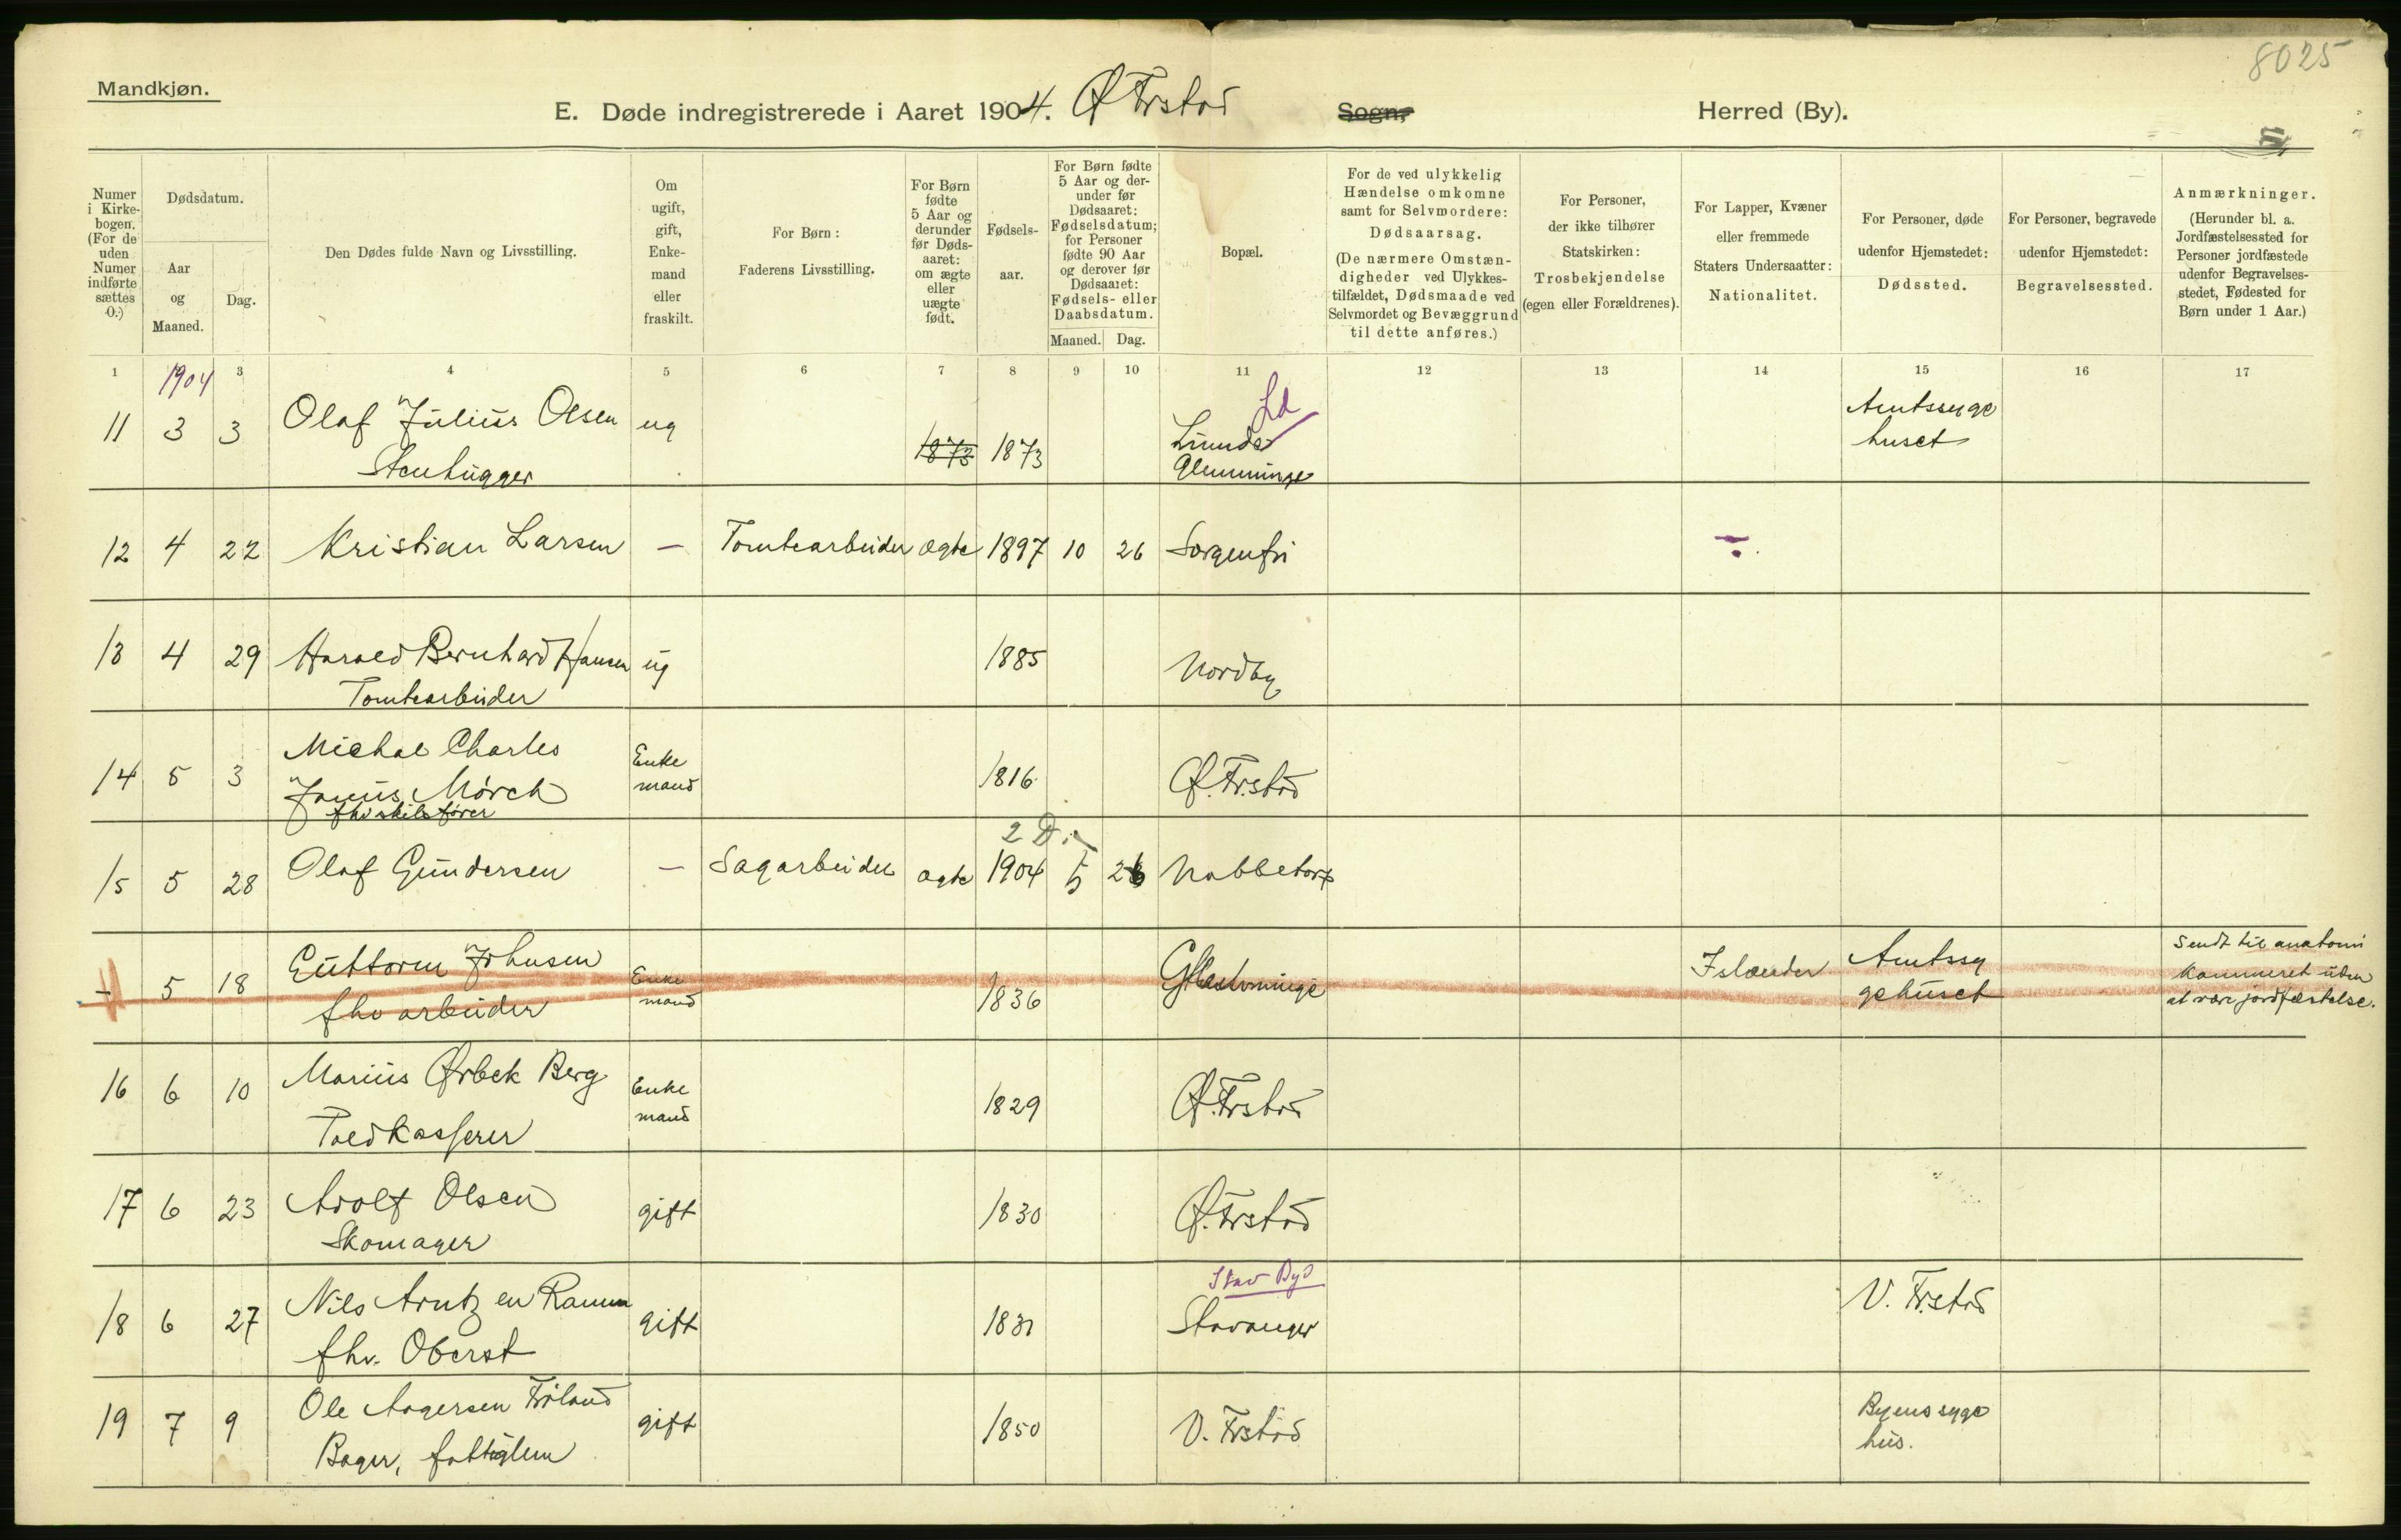 8025
Mandkjøn.
E. Døde indregistrerede i Aaret 1904. Ø Frstad Sogn, Herred (By).
Numer i Kirke-bogen. (For de uden Numer indførte sættes 0.)
Dødsdatum.
Aar og Maaned.
Dag.
Den Dødes fulde Navn og Livsstilling.
Om ugift, gift, Enke-mand eller fraskilt.
For Børn: Faderens Livsstilling.
For Børn fødte 5 Aar og derunder før Døds-aaret: om ægte eller uægte født.
Fødsels-aar.
For Børn fødte 5 Aar og der-under før Dødsaaret: Fødselsdatum; for Personer fødte 90 Aar og derover før Dødsaaret: Fødsels- eller Daabsdatum.
Maaned. Dag.
Bopæl.
For de ved ulykkelig Hændelse omkomne samt for Selvmordere: Dødsaarsag. (De nærmere Omstæn-digheder ved Ulykkes-tilfældet, Dødsmaade ved Selvmordet og Bevæggrund til dette anføres.)
For Personer, der ikke tilhører Statskirken: Trosbekjendelse (egen eller Forældrenes).
For Lapper, Kvæner eller fremmede Staters Undersaatter: Nationalitet.
For Personer, døde udenfor Hjemstedet: Dødssted.
For Personer, begravede udenfor Hjemstedet: Begravelsessted.
Anmærkninger. (Herunder bl. a. Jordfæstelsessted for Personer jordfæstede udenfor Begravelses-stedet, Fødested for Børn under 1 Aar.)
1 3 4 5 6 7 8 9 10 11 12 13 14 15 16 17
1904
11 3 3 Olaf Julius Olsen ug 1873 1873 Lunde Ld Amtssyge
Stenhugger Glemminge huset
12 4 22 Kristian Larsen — Tomtearbeider ægte 1897 10 26 Sorgenfri
13 4 29 Harald Bernhard Hansen ug 1885 Nordby
Tomtearbeider
14 5 3 Michal Charles Enke 1816 Ø. Frstad
Janus Mørch mand
fhv skibsfører
2 D.
15 5 28 Olaf Gundersen — Sagarbeider ægte 1904 5 26 Nabbetorp
— 5 18 Guttorm Johnsen Enke 1836 Glemminge Islænder Amtssy Sendt til anatomi
fhv arbeider mand gehuset kammeret uden
at være jordfæstelse.
16 6 10 Marius Ørbek Berg Enke 1829 Ø. Frstad
Toldkasserer mand
17 6 23 Adolf Olsen gift 1830 Ø. Frstad
Skomager
18 6 27 Nils Arntzen Ramm gift 1831 Stav By Stavanger V. Frstad
fhv. Oberst
19 7 9 Ole Aagersen Frøland gift 1850 V. Frstad Byens syge
Bager, fattiglem hus.